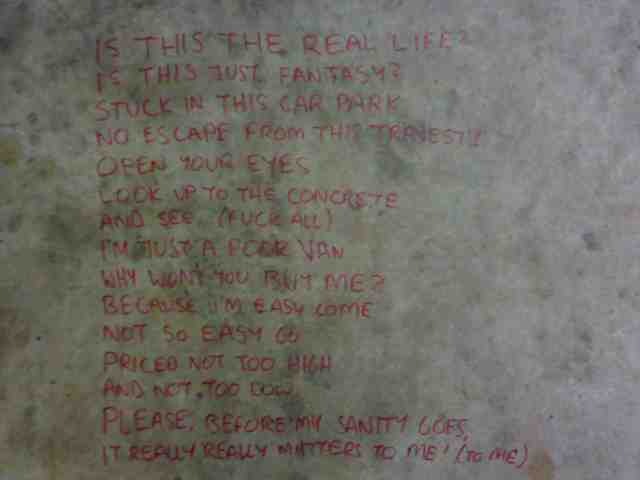 IS THIS THE REAL LIFE?
IS THIS JUST FANTASY?
STUCK IN THIS CAR PARK
NO ESCAPE FROM THIS TRAVESTY!
OPEN YOUR EYES
LOOK UP TO THE CONCRETE
AND SEE (FUCK ALL)
I'M JUST A POOR VAN
WHY WON'T YOU BUY ME?
BECAUSE I'M EASY COME
NOT SO EASY GO
PRICED NOT TOO HIGH
AND NOT TOO LOW
PLEASE, BEFORE MY SANITY GOES,
IT REALLY REALLY MATTERS TO ME! (TO ME)